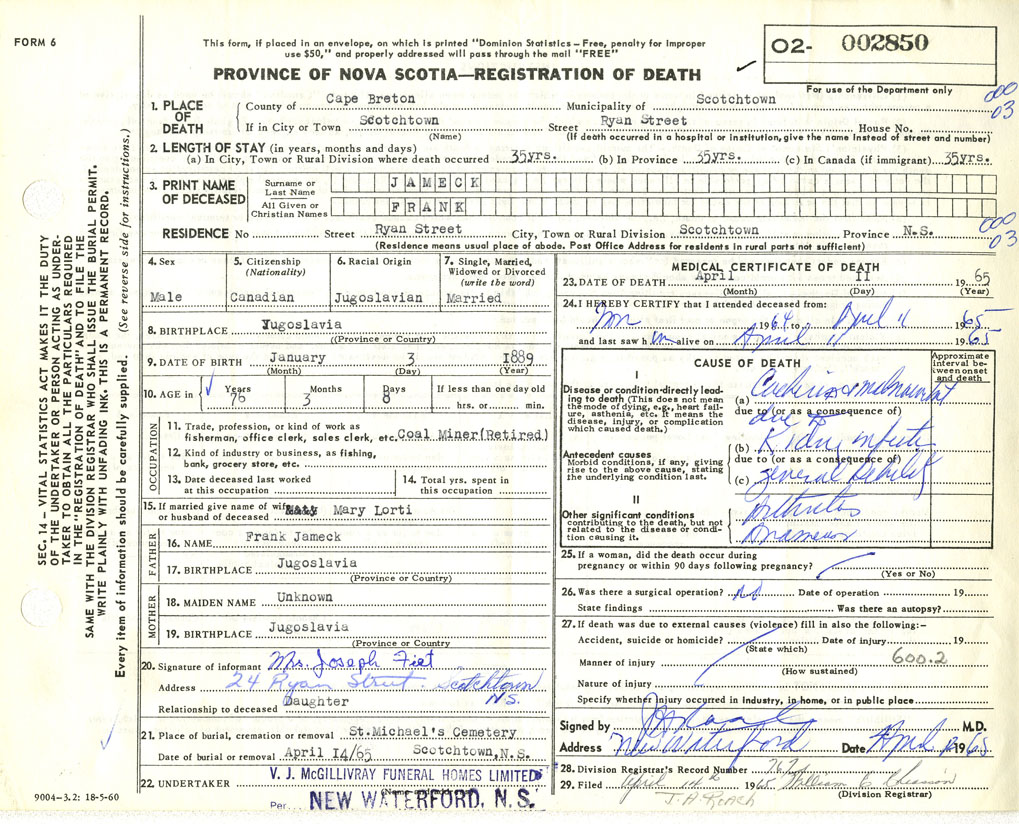 FORM 6
This form, if placed in an envelope, on which is printed "Dominion Statistics – Free, penalty for improper
use $50," and properly addressed will pass through the mail "FREE"
PROVINCE OF NOVA SCOTIA—REGISTRATION OF DEATH
02- 002850
For use of the Department only
000
03
1. PLACE OF DEATH
County of Cape Breton Municipality of Scotchtown
If in City or Town Scotchtown Street Ryan Street House No.
(Name) (If death occurred in a hospital or institution, give the name instead of street and number)
2. LENGTH OF STAY (in years, months and days)
(a) In City, Town or Rural Division where death occurred 35yrs. (b) In Province 35yrs. (c) In Canada (if immigrant) 35yrs.
3. PRINT NAME OF DECEASED
Surname or Last Name JAMECK
All Given or Christian Names FRANK
000
03
RESIDENCE No Street Ryan Street City, Town or Rural Division Scotchtown Province N.S.
(Residence means usual place of abode. Post Office Address for residents in rural parts not sufficient)
4. Sex
Male
5. Citizenship
(Nationality)
Canadian
6. Racial Origin
Jugoslavian
7. Single, Married,
Widowed or Divorced
(write the word)
Married
8. BIRTHPLACE Jugoslavia
((Province or Country)
9. DATE OF BIRTH January 3 1889
(Month) (Day) (Year)
10. AGE in Years 76 Months 3 Days 8 If less than one day old
hrs. or min.
OCCUPATION
11. Trade, profession, or kind of work as
fisherman, office clerk, sales clerk, etc. Coal Miner(Retired)
12. Kind of industry or business, as fishing,
bank, grocery store, etc.
13. Date deceased last worked
at this occupation
14. Total yrs. spent in
this occupation
15. If married give name of wife
or husband of deceased Mary Lorti
FATHER
16. NAME Frank Jameck
17. BIRTHPLACE Jugoslavia
(Province or Country)
MOTHER
18. MAIDEN NAME Unknown
19. BIRTHPLACE Jugoslavia
(Province or Country
20. Signature of informant Mrs. Joseph Fiet
Address 24 Ryan Street. Scotchtown
N.S.
Relationship to deceased Daughter
21. Place of burial, cremation or removal St.Michael's Cemetery
Date of burial or removal April I4/65 Scotchtown,N.S.
22. UNDERTAKER V. J. McGILLIVRAY FUNERAL HOMES LIMITED
Per NEW WATERFORD, N.S.
9004-3.2: 18-5-60
MEDICAL CERTIFICATE OF DEATH
23. DATE OF DEATH April II 1965
(Month) (Day) (Year)
24. I HEREBY CERTIFY that I attended deceased from:
Nov 1964 to April 11 1965
and last saw him alive on April 11 1965
CAUSE OF DEATH
Approximate interval between onset and death
I
Disease or condition directly leading to death (This does not mean the mode of dying, e.g., heart failure, asthenia, etc. It means the disease, injury, or complication which caused death.)
(a)
due to (or as a consequence of)
due to
Antecedent causes
Morbid conditions, if any, giving rise to the above cause, stating the underlying condition last.
(b) Kidney
due to (or as a consequence of)
(c) general debility
II
Other significant conditions
contributing to the death, but not related to the disease or condition causing it.
Arthritis
25. If a woman, did the death occur during
pregnancy or within 90 days following pregnancy?
(Yes or No)
26. Was there a surgical operation? no Date of operation 19
State findings Was there an autopsy?
27. If death was due to external causes (violence) fill in also the following:–
Accident, suicide or homicide? Date of injury 19
(State which)
Manner of injury 600.2
(How sustained)
Nature of injury
Specify whether injury occurred in industry, in home, or in public place
Signed by M.D.
Address New Waterford Date April 1965
28. Division Registrar's Record Number
29. Filed April 14th 1965 William
J. A. Roach (Division Registrar)
SEC. 14 – VITAL STATISTICS ACT MAKES IT THE DUTY
OF THE UNDERTAKER OR PERSON ACTING AS UNDER-
TAKER TO OBTAIN ALL THE PARTICULARS REQUIRED
IN THE "REGISTRATION OF DEATH" AND TO FILE THE
SAME WITH THE DIVISION REGISTRAR WHO SHALL ISSUE THE BURIAL PERMIT.
WRITE PLAINLY WITH UNFADING INK. THIS IS A PERMANENT RECORD.
Every item of information should be carefully supplied. (See reverse side for instructions.)